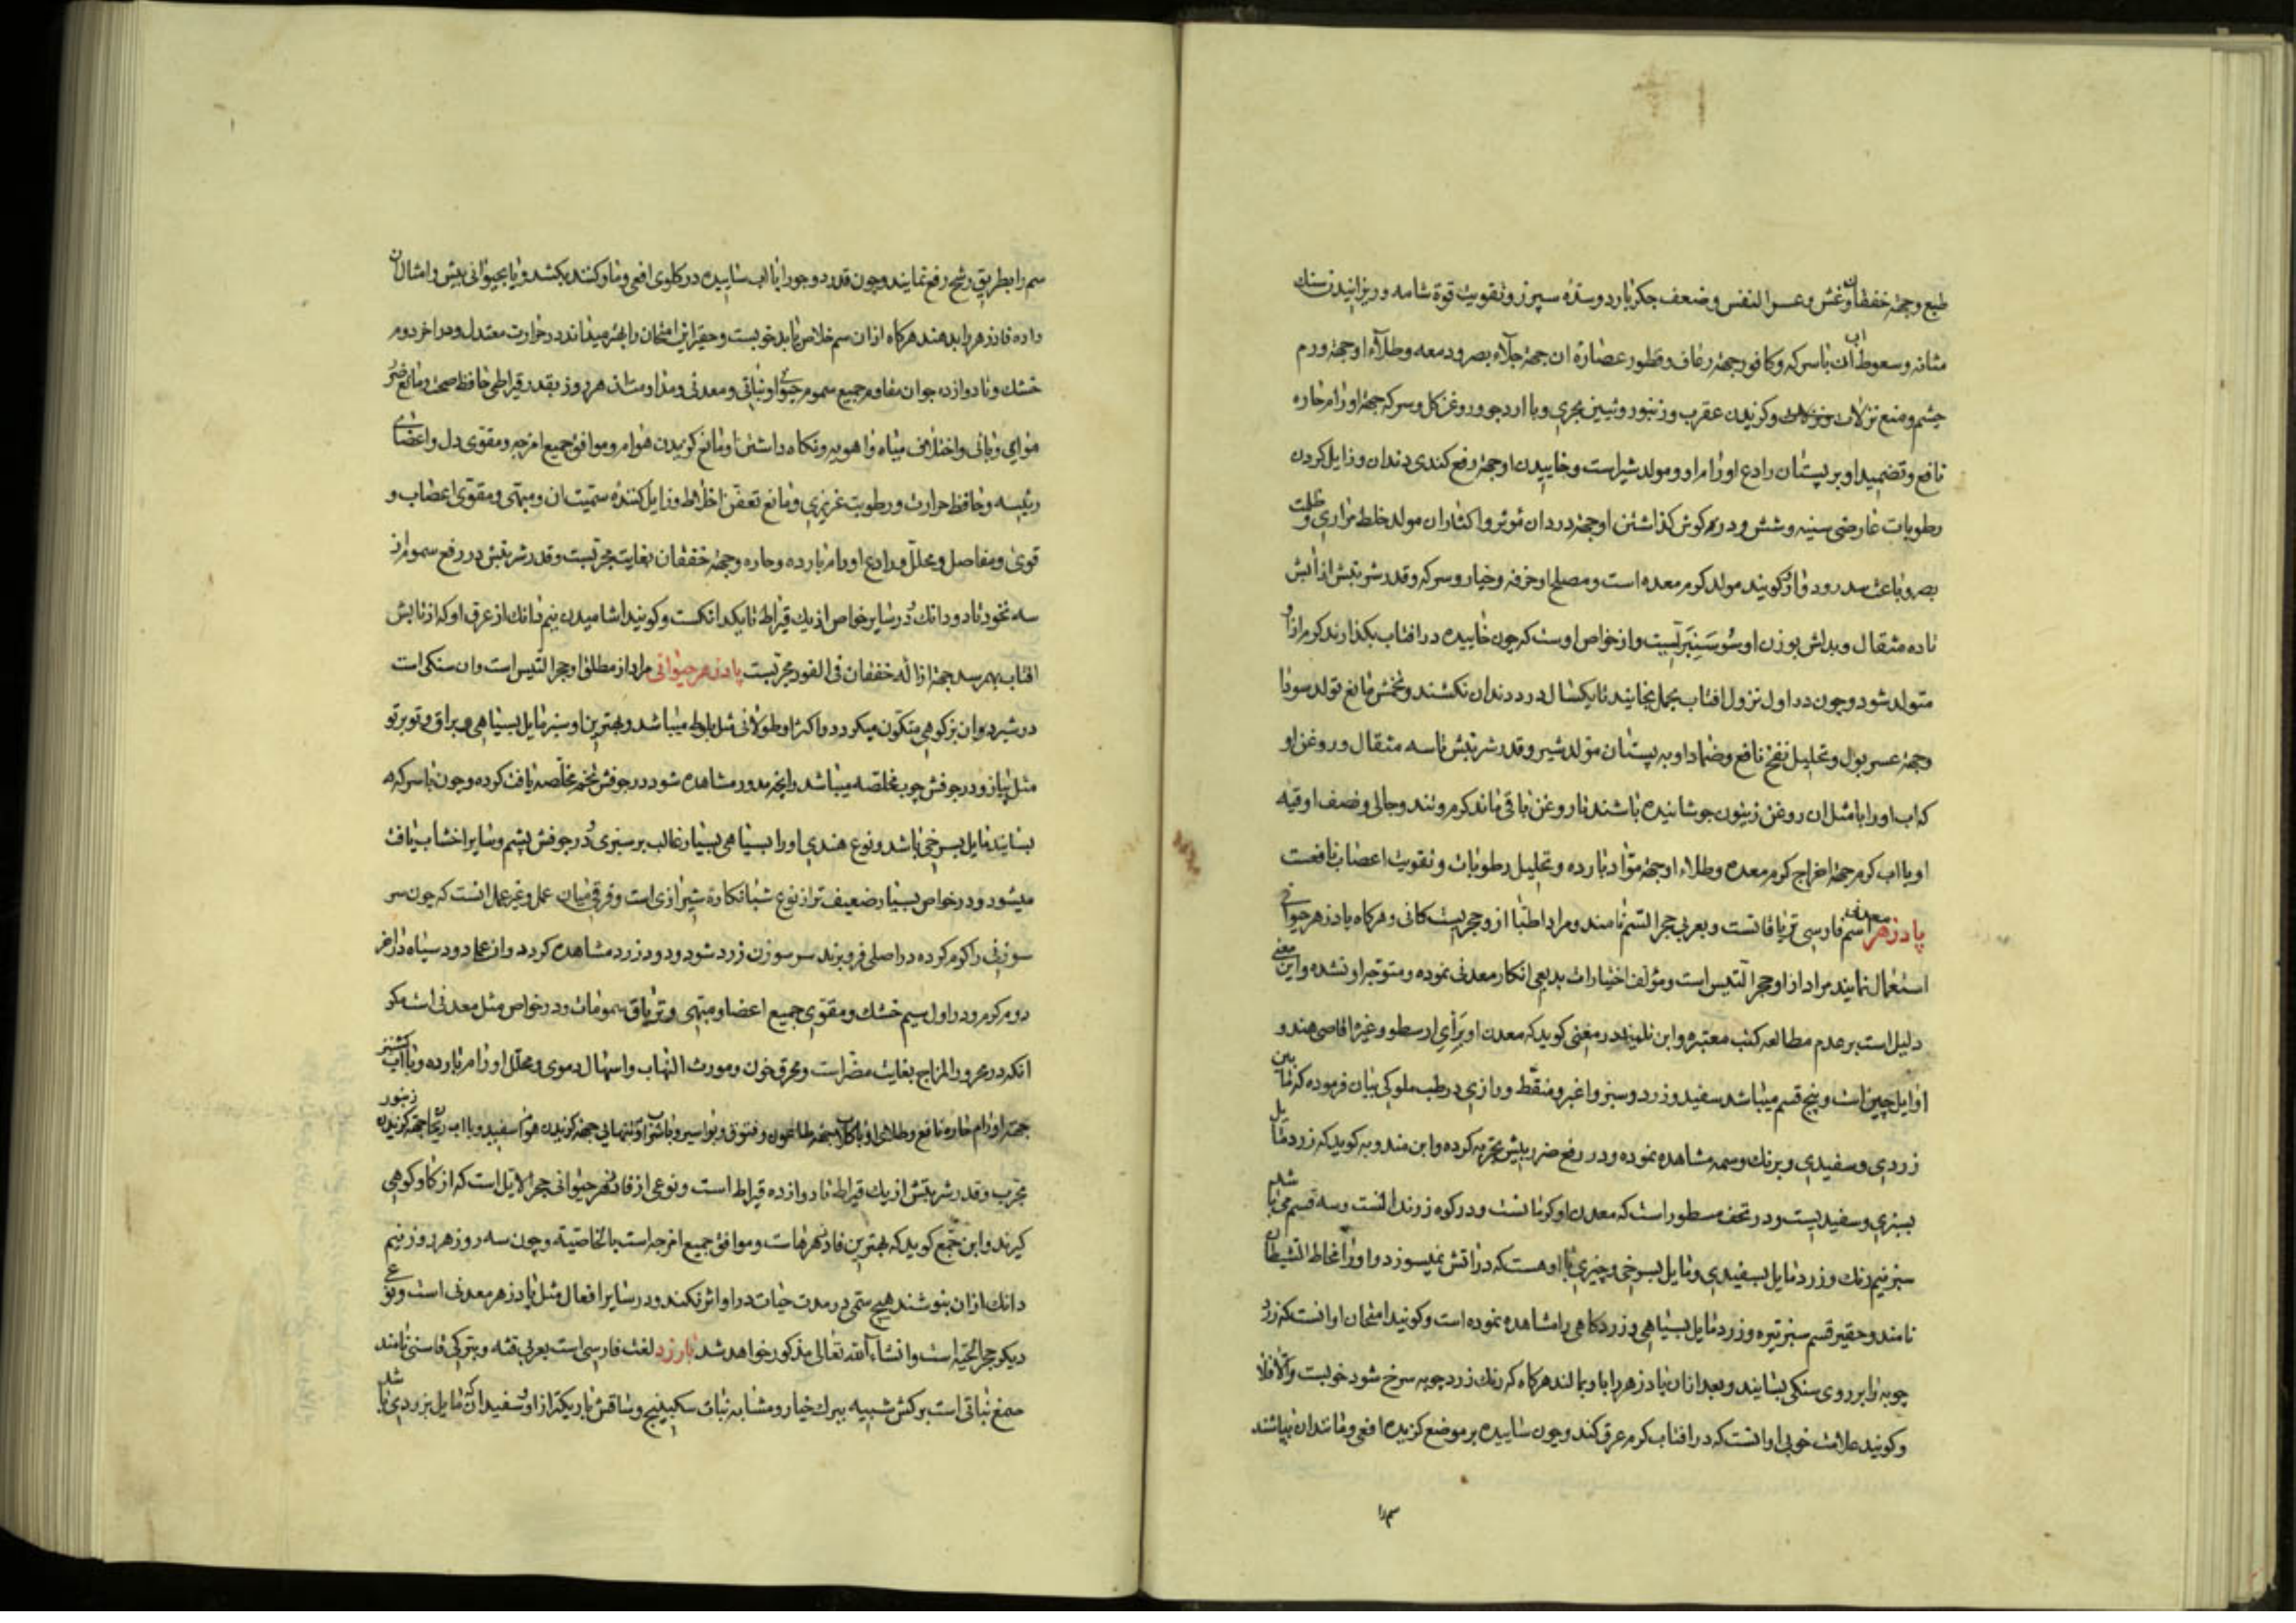 طبع وجهة خفقان وغشی وعسر النفس وضعف جکر بارد وسدّه سپرز وتقویت قوة شامه وریزانیدن سنك
مثانه وسعوط اب ان باسرکه وکافور جهة رعاف وقطور عصارهٔ ان جهة جلاء بصر ودمعه وطلاء او جهة ورم
چشم ومنع نزلات وکزیدن عقرب وزنبور وتنین بحری وبا ارد جو وروغن کل وسرکه جهة اورام حاره
نافع وتضمید او بر پستان رادع اورام او ومولد شیر است وخاییدن او جهة رفع کندی دندان وزایل کردن
رطوبات عارضی سینه وشش ودر کوش کذاشتن او جهة درد ان موثر واکثار ان مولد خلط مراری وظلمت
بصر وباعث سدر ودوار وکویند مولد کرم معده است ومصلح او خرفه وخیار وسرکه وقدر شربتش از ابش
تا ده مثقال وبدلش بوزن او سوسنبر است واز خواص اوست که چون خاییده در افتاب بکذارند کرم از او
متولد شود وچون در اول نزول افتاب بحمل بخایند تا یکسال درد دندان نکشند وتخمش مانع تولد سودا
وجهة عسر بول وتحلیل نفخ نافع وضماد او به پستان مولد شیر وقدر شربتش تا سه مثقال وروغن او
که اب او را با مثل ان روغن زیتون جوشانیده باشند تا روغن باقی ماند کرم وتند وجالی ونصف اوقیه
او با اب کرم جهة اخراج کرم معده وطلاء او جهة مواد بارده وتحلیل رطوبات وتقویت اعصاب نافعست
پادزهر معدنی اسم فارسی تریاقاتست وبعربی حجر السّم نامند ومراد اطبّا از و حجریست کانی وهرکاه پادزهر حیوانی
استعمال نمایند مراد از او حجر التیس است ومؤلف اختیارات بدیعی انکار معدنی نموده ومتوجه او نشده واین معنی
دلیل است بر عدم مطالعه کتب معتبره وابن تلمیذ در مغنی کوید که معدن او برای ارسطو وغیره اقاصی هند و
اوایل چین است وپنج قسم میباشد سفید وزرد وسبز واغبر ومنقّط ورازی در طب ملوکی بیان فرموده که ما بین
زردی وسفیدی وبرنك وسمه مشاهده نموده ودر رفع ضرر بیش تجربه کرده وابن مندویه کوید که زرد مایل
بسبزی وسفیدیست ودر تحفه مسطور است که معدن او کرمانست ودر کوه زرند است وسه قسم می باشد
سبز نیم رنك وزرد مایل بسفیدی ومایل بسرخی وچیزی با او هست که در اتش نمیسوزد واو را مخاط الشیطان
نامند وحقیر قسم سبز تیره وزرد مایل بسیاهی وزرد کاهی را مشاهده نموده است وکویند امتحان او انست که زرد
چوبه را بر روی سنکی بسایند وبعد از ان پادزهر را با و بمالند هرکاه که رنك زردچوبه سرخ شود خوبست والا فلا
وکویند علامت خوبی او انست که در افتاب کرم عرق کند وچون ساییده بر موضع کزیده افعی ومانند ان بپاشند
سم را
سم را بطریق رشح رفع نمایند وچون قدر دو جو را با اب ساییده در کلوی افعی ومار کنند بکشد ویا بحیوانی بیش وامثال ان
داده فادزهر را بدهند هرکاه از ان سم خلاص یابد خوبست وحقیر این امتحان را بهتر میداند در حرارت معتدل ودر اخر دوم
خشك وتا دوازده جو ان مقاوم جمیع سموم حیوانی ونباتی ومعدنی ومداومت ان هر روز بقدر قیراطی حافظ صحت ومانع ضرر
هوای وبائی واختلاف میاه واهویه ونکاه داشتن او مانع کزیدن هوام وموافق جمیع امزجه ومقوی دل واعضای
رئیسه وحافظ حرارت ورطوبت غریزی ومانع تعفّن اخلاط وزایل کننده سمّیت ان ومبهّی ومقوی اعصاب و
قوی ومفاصل ومحلّل ورادع اورام بارده وحاره وجهة خفقان بغایت مجربست وقدر شربتش در رفع سموم از
سه نخود تا دو دانك ودر سایر خواص از یك قیراط تا یکدانکست وکویند اشامیدن نیم دانك از عرق او که از تابش
افتاب بهم رسد جهة ازاله خفقان فی الفور مجربست پادزهر حیوانی مراد از مطلق او حجر التیس است وان سنکی است
در شیردوان بز کوهی متکون میکردد واکثر او طولانی مثل بلوط میباشد وبهترین او سبز مایل بسیاهی براق وتو بر تو
مثل پیاز ودر جوفش چوب مخلصه میباشد وانچه مدور مشاهده شود در جوفش تخم مخلّصه یافت کرده وچون با سرکه
بسایند مایل بسرخی باشد ونوع هندی او را سیاهی بسیار غالب بر سبزی ودر جوفش پشم وسایر اخشاب یافت
میشود ودر خواص بسیار ضعیف تر از نوع شبانکارهٔ شیرازی است وفرق میان عمل وغیر عمل انست که چون سر
سوزنی را کرم کرده در اصلی فرو برند سر سوزن زرد شود ودود زرد مشاهده کردد واز عمل دود سیاه در اخر
دوم کرم ودر اول سیم خشك ومقوّی جمیع اعضا ومبهّی وتریاق سمومات ودر خواص مثل معدنی است مکر
انکه در محرور المزاج بغایت مضّر است ومحرق خون ومورث التهاب واسهال دموی ومحلّل اورام بارده وبا اب کشنیز
جهة اورام حاره نافع وطلای او با کلاب جهة طاعون وفتوق وبواسیر وبا شراب وتنهایی جهة کزیدن هوام سفید وبا اب ریحان جهة کزیدن زنبور
مجرب وقدر شربتش از یك قیراط تا دوازده قیراط است ونوعی از فادزهر حیوانی حجر الایل است که از کاو کوهی
کیرند وابن جمّع کوید که بهترین فادزهرهاست وموافق جمیع امزجه است بالخاصّیة وچون سه روز هر روز نیم
دانك از ان بنوشند هیچ سمّی در مدت حیات در او اثر نکند ودر سایر افعال مثل پادزهر معدنی است ونوعی
دیکر حجر الحیّه است وانشاء الله تعالی مذکور خواهد شد بارزد لغت فارسی است بعربی قنّه وبترکی قاسنی نامند
صمغ نباتی است برکش شبیه ببرك خیار ومشابه نبات سکبینج وساقش باریکتر از او وسفید ان که مایل بزردی باشد